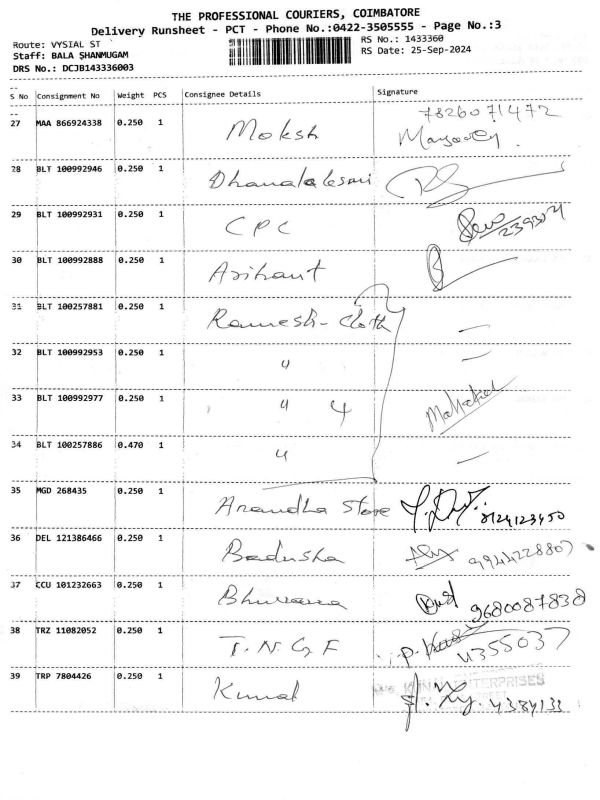 THE PROFESSIONAL COURIERS, COIMBATORE
Delivery Runsheet - PCT - Phone No.:0422-3505555 - Page No.:3
Route: VYSIAL ST
Staff: BALA SHANMUGAM
DRS No.: DCJB143336003
RS No.: 1433360
RS Date: 25-Sep-2024
S No Consignment No Weight PCS Consignee Details Signature
27 MAA 866924338 0.250 1 Moksh 7826071472
28 BLT 100992946 0.250 1 Dhanalalesmi
29 BLT 100992931 0.250 1 CPC
30 BLT 100992888 0.250 1 Arihant
31 BLT 100257881 0.250 1 Ramesh-Cloth –
32 BLT 100992953 0.250 1 〃 –
33 BLT 100992977 0.250 1 〃 4
34 BLT 100257886 0.470 1 〃 –
35 MGD 268435 0.250 1 Anandha Store 8124123450
36 DEL 121386466 0.250 1 Badusha 9944228807
37 CCU 101232663 0.250 1 Bhuvana 9680087838
38 TRZ 11082052 0.250 1 T.N.G.F 4355037
39 TRP 7804426 0.250 1 Kunal ENTERPRISES 4384133